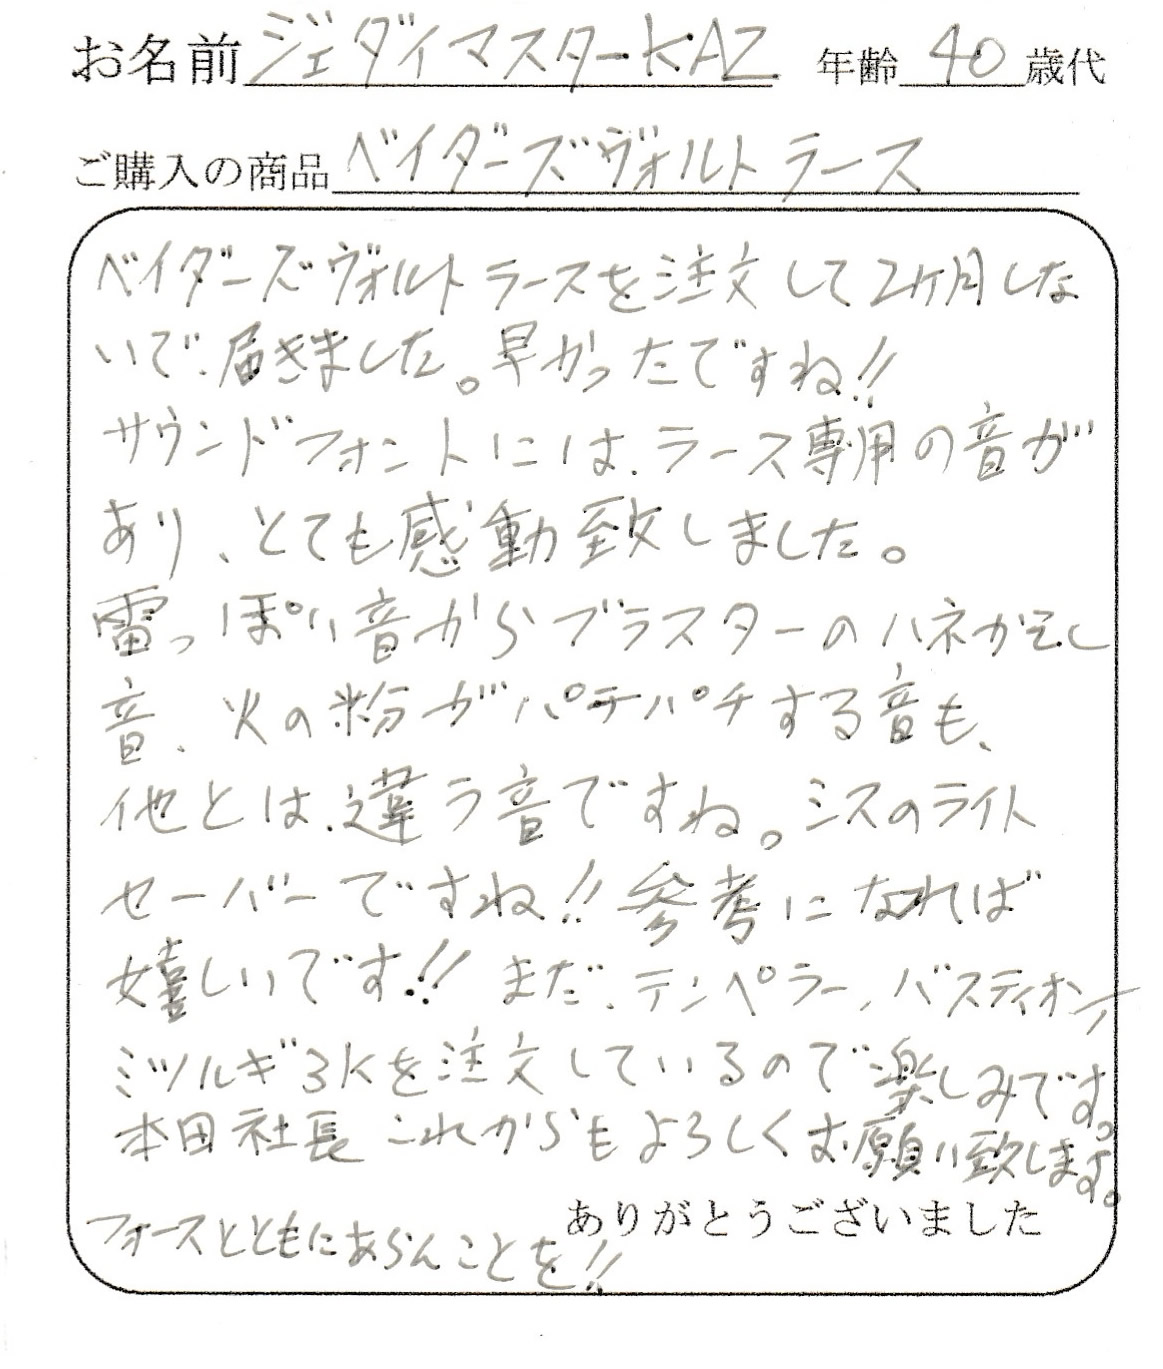 お名前 ジェダイマスターKAZ 年齢 40 歳代
ご購入の商品 ベイダーズヴォルトラース
ベイダーズヴォルトラースを注文して2ヶ月しな
いで、届きました。早かったですね!!
サウンドフォントには、ラース専用の音が
あり、とても感動致しました。
雷っぽい音からブラスターのハネかえし
音、火の粉がパチパチする音も、
他とは、違う音ですね。シスのライト
セーバーですね!!参考になれば
嬉しいです!!まだ、テンペラー、バスティオン、
ミツルギ3Kを注文しているので楽しみです。
本田社長これからもよろしくお願い致します。
ありがとうございました
フォースとともにあらんことを!!